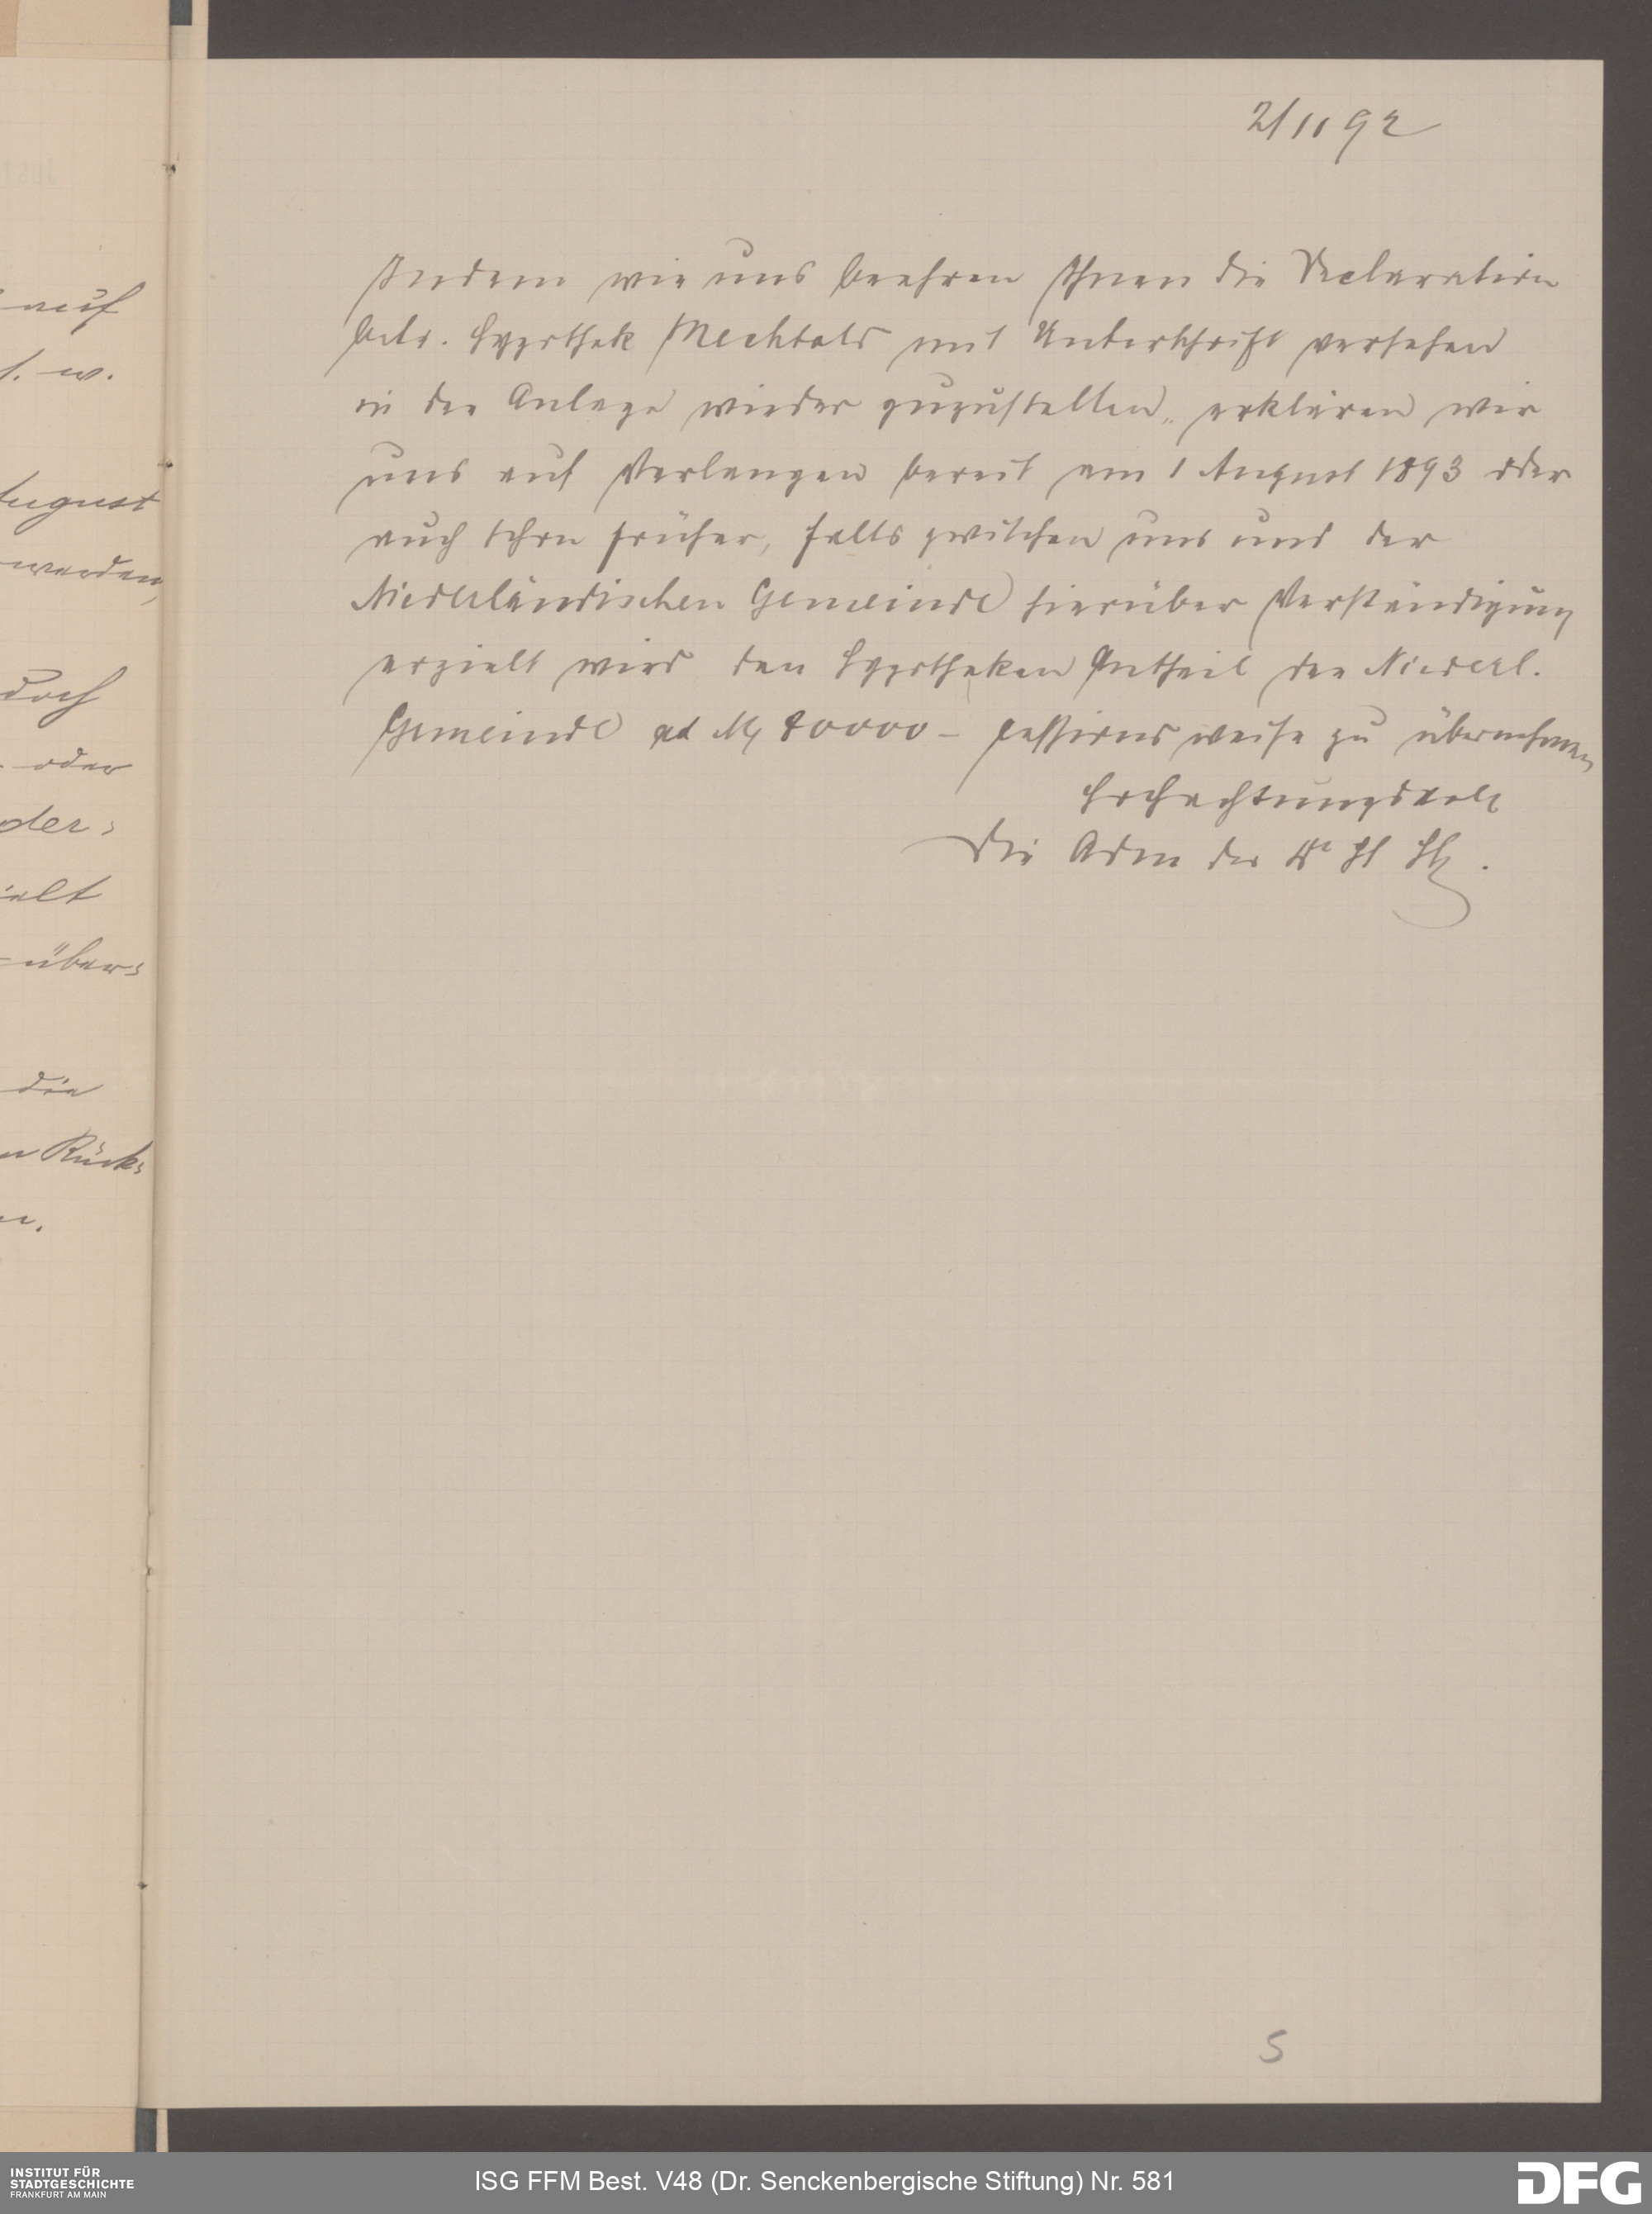 2/11 92
Indem wir uns beehren Ihnen die Declaration
betr. Hypothek Mechtold mit Unterschrift versehen
in der Anlage wieder zuzustellen, erklären wir
uns auf Verlangen bereit am 1 August 1893 oder
auch schon früher, falls zwischen uns und der
Niederländischen Gemeinde hierüber Verständigung
erzielt wird den Hypotheken Antheil der Niederl.
Gemeinde ad M 80000 – cessionsweise zu übernehmen
Hochachtungsvoll
Die Adm der
5
auf
. w.
August
werden,
doch
oder
der
ielt
über
die
Rück
INSTITUT FÜR
STADTGESCHICHTE
FRANKFURT AM MAIN
ISG FFM Best. V48 (Dr. Senckenbergische Stiftung) Nr. 581
DFG